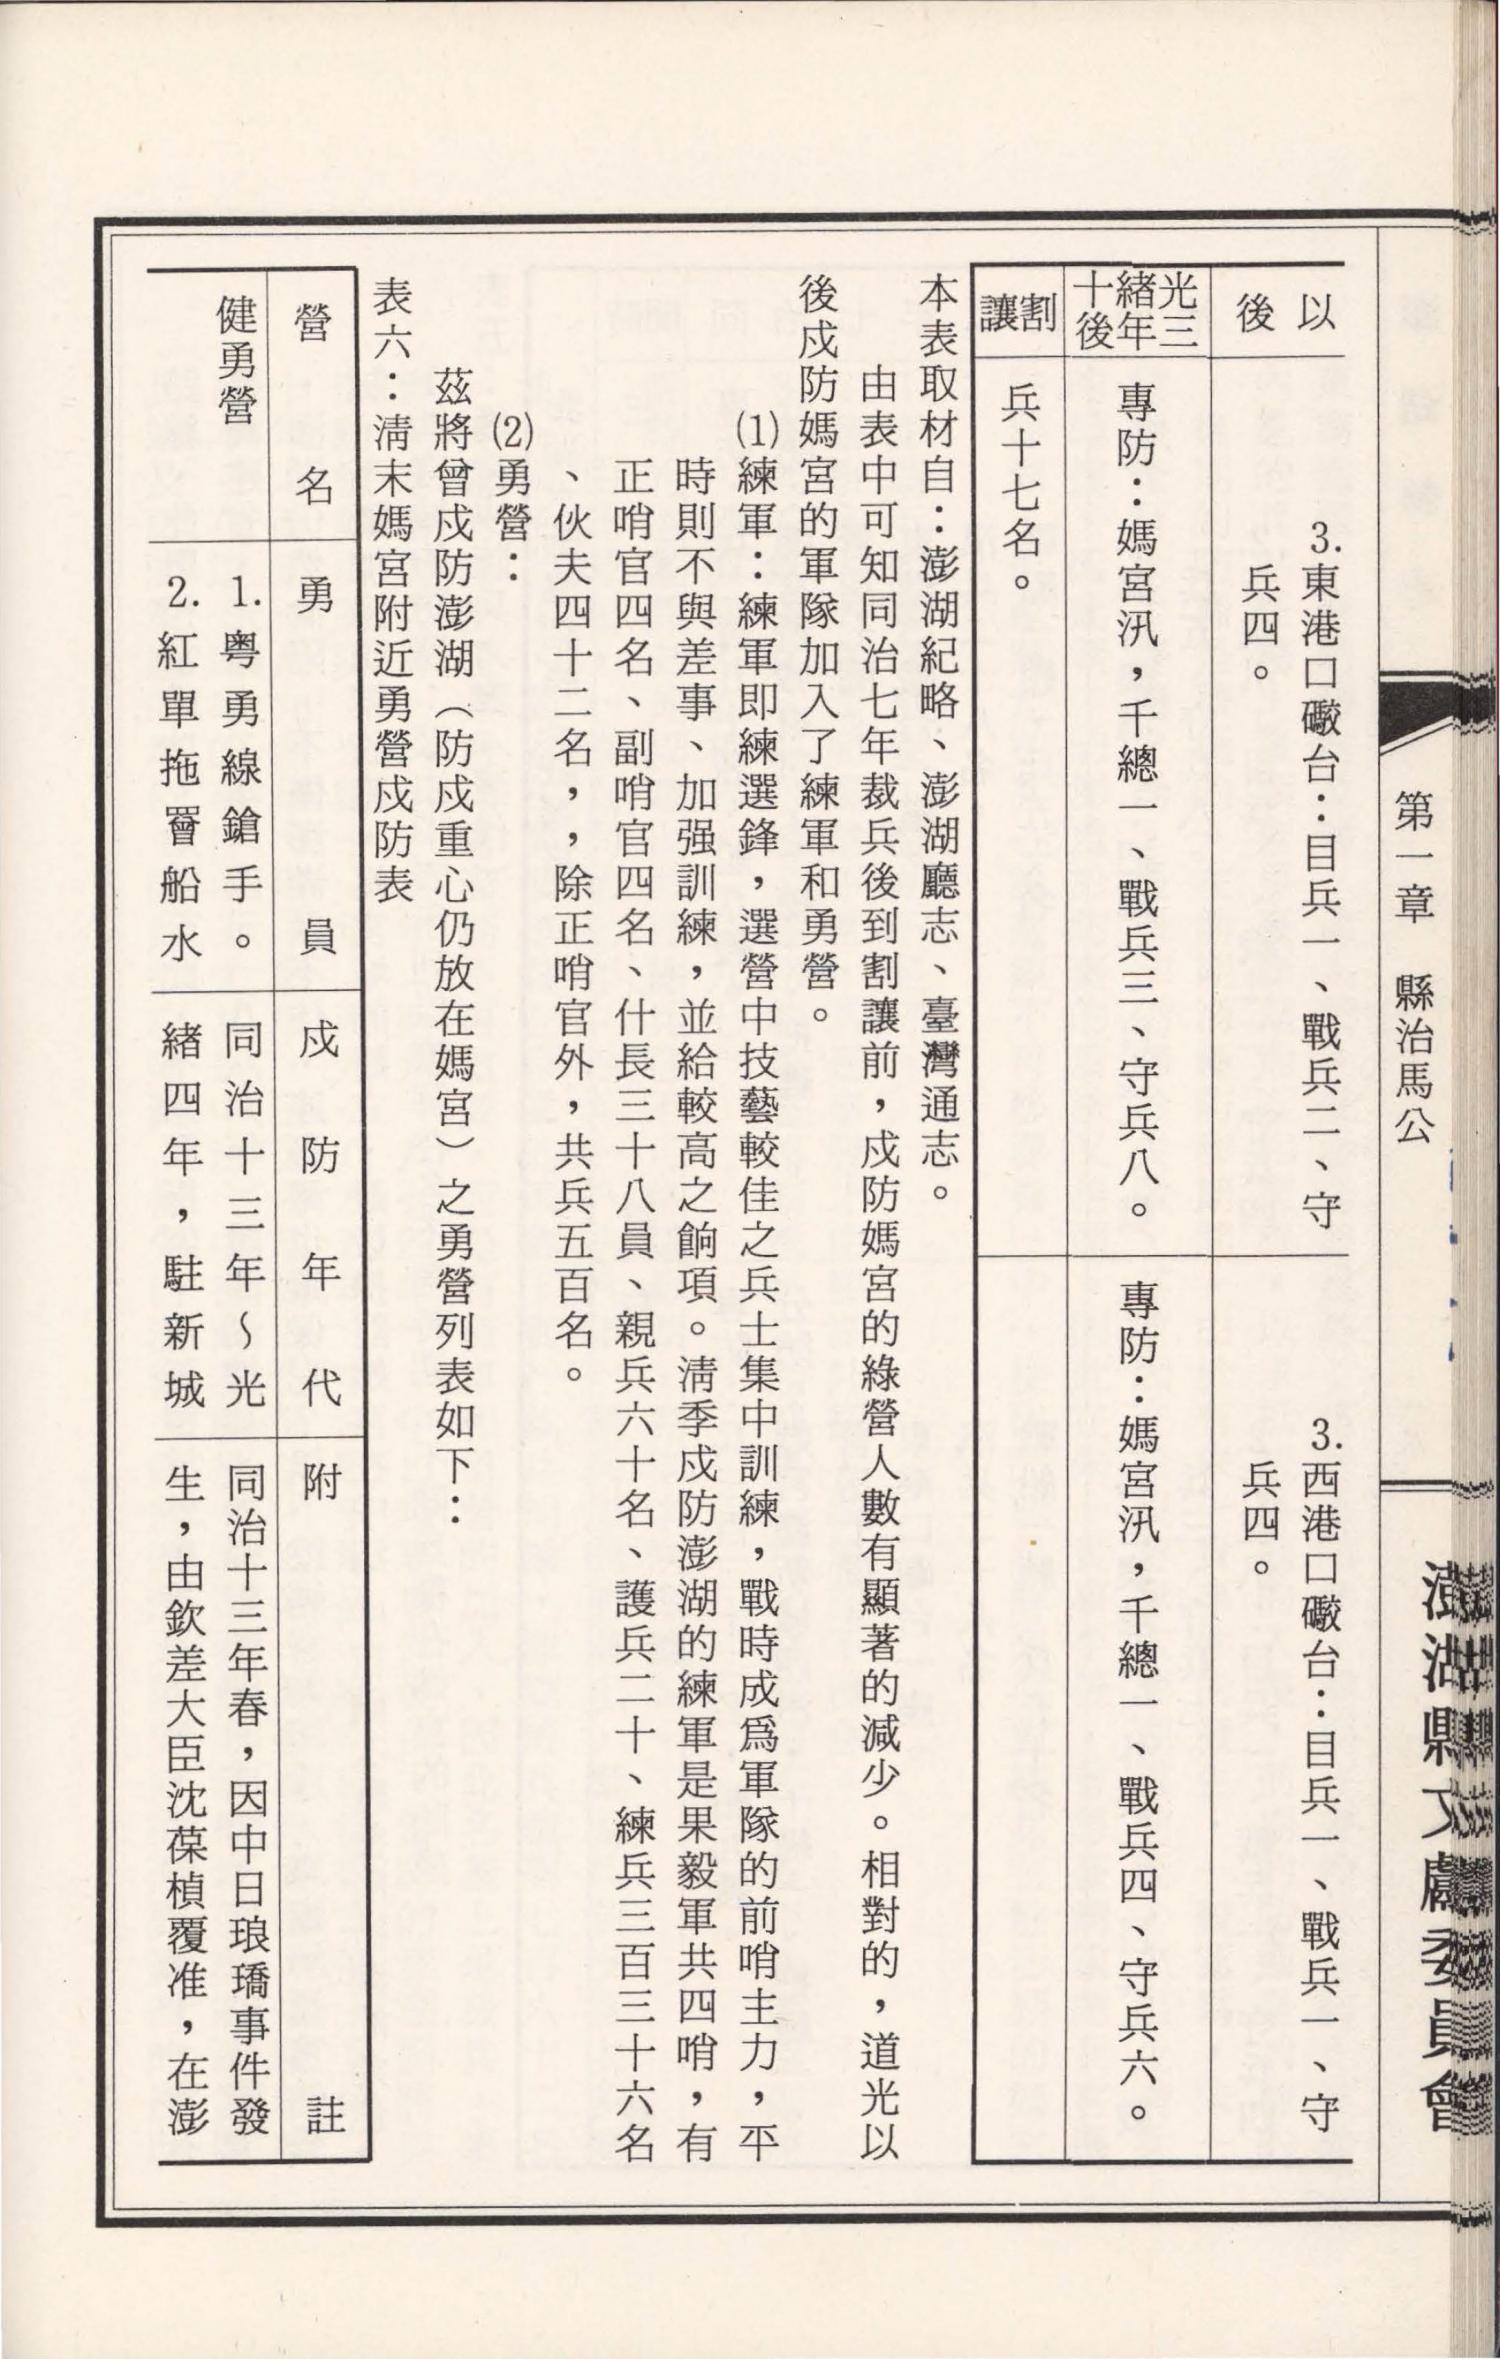 第一章　縣治馬公
澎湖縣文獻委員會
以後
3.東港口礮台：目兵一、戰兵二、守
兵四。
3.西港口礮台：目兵一、戰兵一、守
兵四。
光緒十三年後
專防：媽宮汛，千總一、戰兵三、守兵八。
專防：媽宮汛，千總一、戰兵四、守兵六。
割讓
兵十七名。
本表取材自：澎湖紀略、澎湖廳志、臺灣通志。
由表中可知同治七年裁兵後到割讓前，戍防媽宮的綠營人數有顯著的減少。相對的，道光以
後戍防媽宮的軍隊加入了練軍和勇營。
(1)練軍：練軍即練選鋒，選營中技藝較佳之兵士集中訓練，戰時成爲軍隊的前哨主力，平
時則不與差事、加强訓練，並給較高之餉項。淸季戍防澎湖的練軍是果毅軍共四哨，有
正哨官四名、副哨官四名、什長三十八員、親兵六十名、護兵二十、練兵三百三十六名
、伙夫四十二名，，除正哨官外，共兵五百名。
(2)勇營：
茲將曾戍防澎湖（防戍重心仍放在媽宮）之勇營列表如下：
表六：淸末媽宮附近勇營戍防表
營名
勇員
戍防年代
附註
健勇營
1.粤勇線鎗手。
2.紅單拖罾船水
同治十三年～光
緒四年，駐新城
同治十三年春，因中日琅璚事件發
生，由欽差大臣沈葆楨覆准，在澎